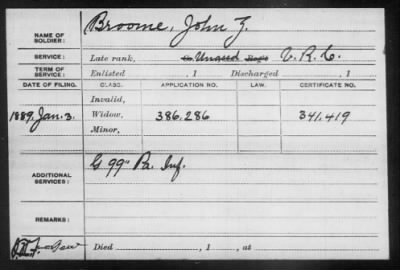 NAME OF SOLDIER: Broome, John Z.
SERVICE: Late rank, Co. Unassd Reg't V. R. C.
TERM OF SERVICE: Enlisted , 1 Discharged , 1
DATE OF FILING. CLASS. APPLICATION NO. LAW. CERTIFICATE NO.
Invalid,
1889, Jan. 3. Widow, 386.286 341.419
Minor,
ADDITIONAL SERVICES: G 99" Pa. Inf.
REMARKS:
Died , 1 , at